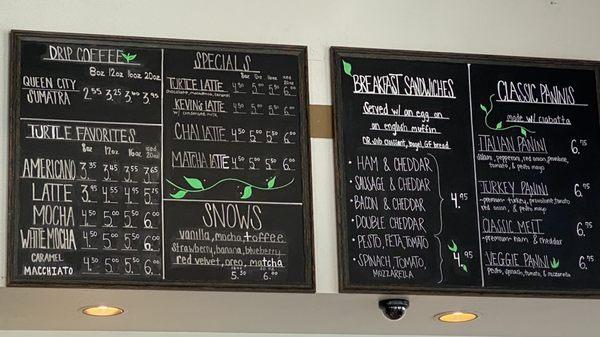 DRIP COFFEE
8oz 12oz 16oz 20oz
QUEEN CITY
SUMATRA 2.55 3.25 3.60 3.95
TURTLE FAVORITES
8oz 12oz 16oz 20oz
AMERICANO 3.35 3.45 3.55 3.65
LATTE 3.95 4.55 4.75 5.75
MOCHA 4.50 5.00 5.50 6.00
WHITE MOCHA 4.50 5.00 5.50 6.00
CARAMEL
MACCHIATO 4.50 5.00 5.50 6.00
SPECIALS
TURTLE LATTE 4.50 5.00 5.50 6.00
chocolate, macadamia, caramel
KEVIN'S LATTE 4.50 5.00 5.50 6.00
w/ condensed milk
CHAI LATTE 4.50 5.00 5.50 6.00
MATCHA LATTE 4.50 5.00 5.50 6.00
SNOWS
vanilla, mocha + toffee
strawberry, banana, blueberry
red velvet, oreo, matcha
5.50 6.00
BREAKFAST SANDWICHES
Served w/ an egg on
an english muffin
OR sub croissant, bagel, GF bread
• HAM & CHEDDAR
• SAUSAGE & CHEDDAR
• BACON & CHEDDAR
• DOUBLE CHEDDAR
4.95
• PESTO, FETA, TOMATO
• SPINACH, TOMATO,
MOZZARELLA
4.95
CLASSIC PANINIS
made w/ ciabatta
ITALIAN PANINI 6.75
salami, pepperoni, red onion, provolone,
tomato, & pesto mayo
TURKEY PANINI 6.75
-premium turkey, provolone, tomato
red onion, & pesto mayo
CLASSIC MELT 6.75
-premium ham & cheddar
VEGGIE PANINI 6.75
-pesto, spinach, tomato, & mozzarella